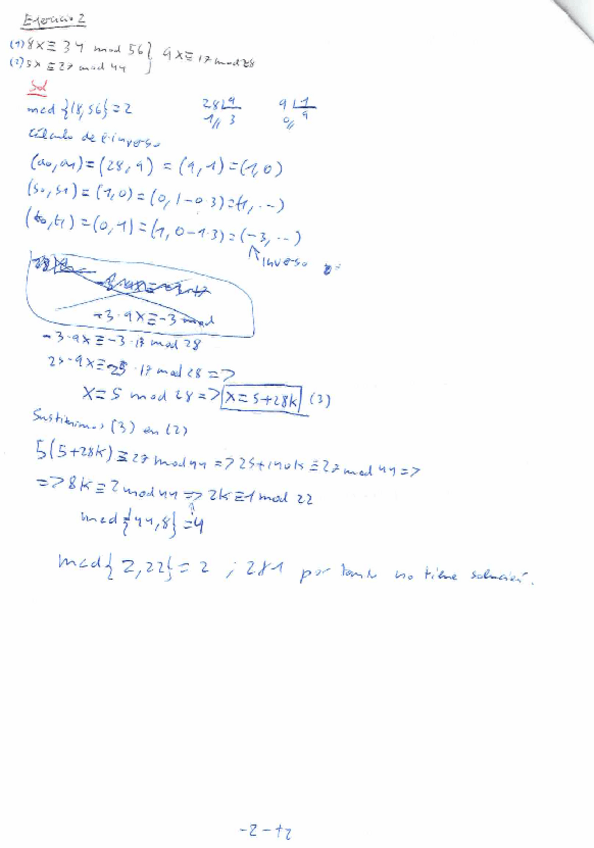 Ejercicio 2
(1) 8x ≡ 34 mod 56 } 9x ≡ 17 mod 28
(2) 5x ≡ 27 mod 44
Sol
mcd {18,56} = 2 28 9 9 1
1// 3 0// 9
Cálculo de inverso
(a0, a1) = (28, 9) = (9, 1) = (1, 0)
(s0, s1) = (1, 0) = (0, 1-0·3) = (1, ...)
(t0, t1) = (0, 1) = (1, 0-1·3) = (-3, ...)
inverso
-3·9x ≡ -3 mod
-3·9x ≡ -3·17 mod 28
25·9x ≡ 25·17 mod 28 =>
x = 5 mod 28 => x = 5+28k (3)
Sustituimos (3) en (2)
5(5+28k) ≡ 27 mod 44 => 25+140k ≡ 27 mod 44 =>
=> 8k ≡ 2 mod 44 => 2k ≡ 1 mod 22
mcd {44,8} = 4
mcd {2,22} = 2 ; 2 1 por tanto no tiene solución.
-2-